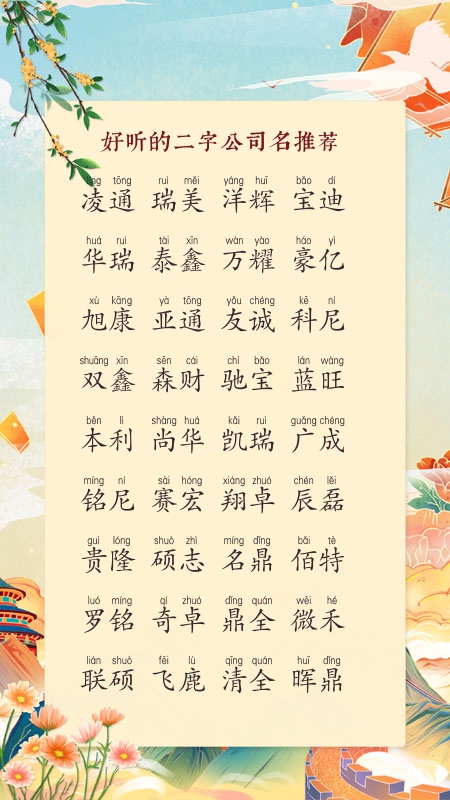 好听的二字公司名推荐
líng tōng ruì měi yáng huī bǎo dí
凌通 瑞美 洋辉 宝迪
huá ruì tài xīn wàn yào háo yì
华瑞 泰鑫 万耀 豪亿
xù kāng yà tōng yǒu chéng kē ní
旭康 亚通 友诚 科尼
shuāng xīn sēn cái chí bǎo lán wàng
双鑫 森财 驰宝 蓝旺
běn lì shàng huá kǎi ruì guǎng chéng
本利 尚华 凯瑞 广成
míng ní sài hóng xiáng zhuó chén lěi
铭尼 赛宏 翔卓 辰磊
guì lóng shuò zhì míng dǐng bǎi tè
贵隆 硕志 名鼎 佰特
luó míng qí zhuó dǐng quán wēi hé
罗铭 奇卓 鼎全 微禾
lián shuò fēi lù qīng quán huī dǐng
联硕 飞鹿 清全 晖鼎